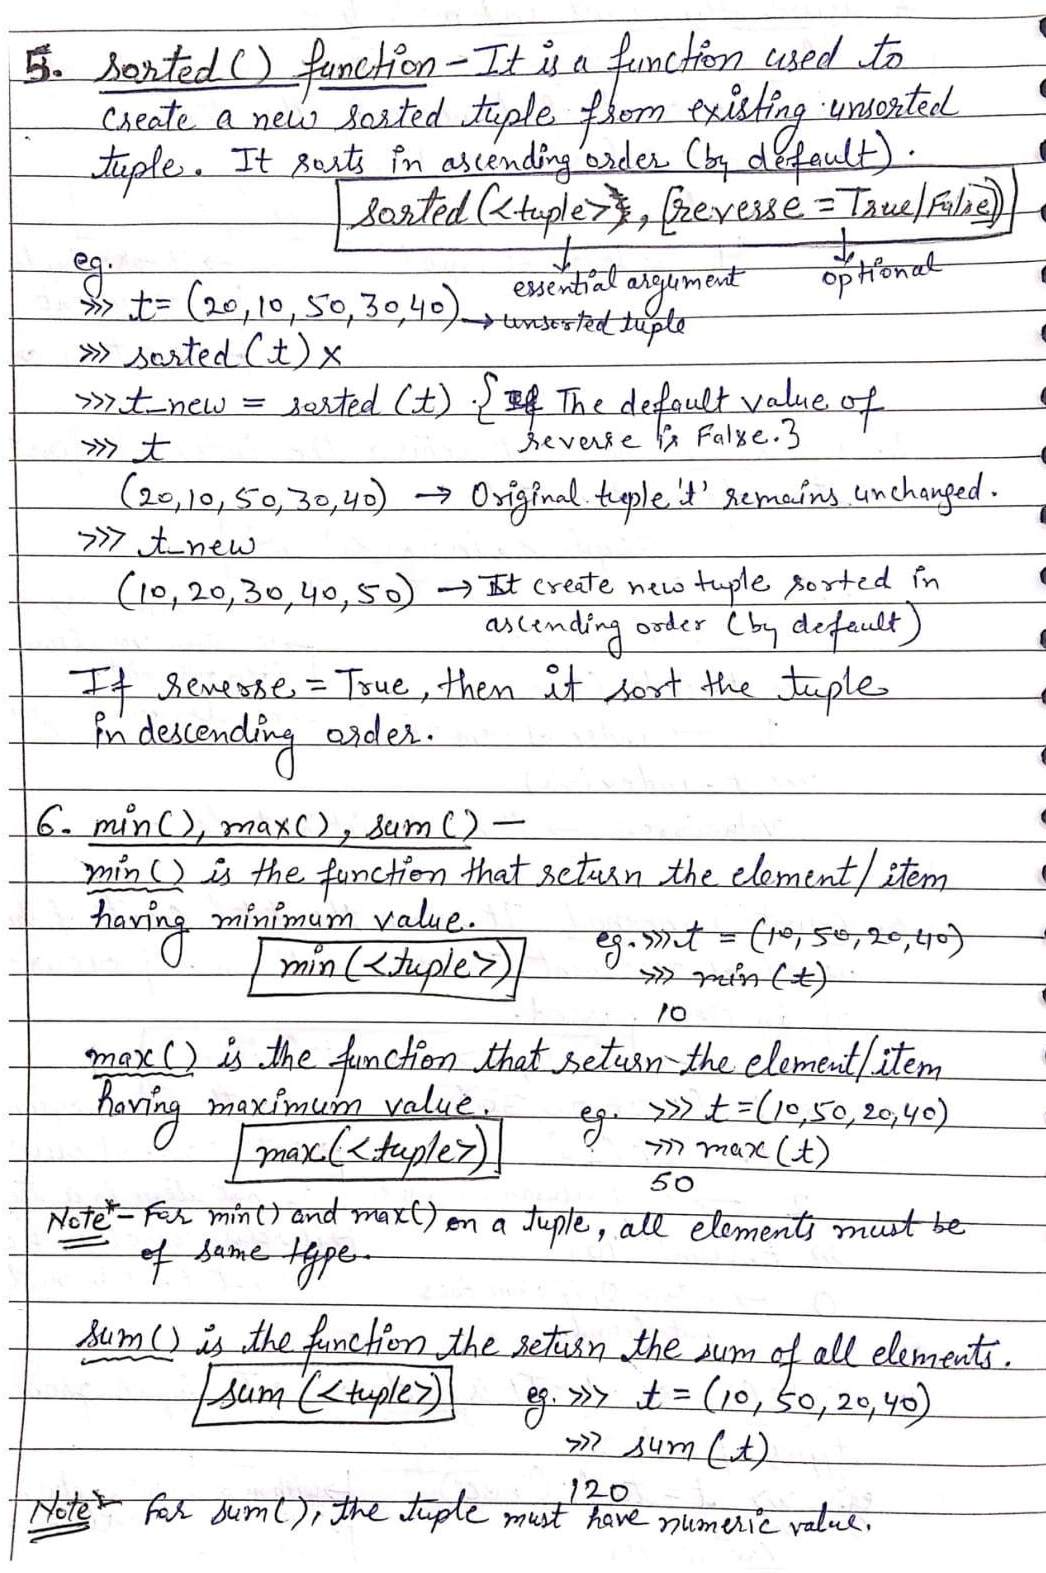 5. sorted() function - It is a function used to
create a new sorted tuple from existing unsorted
tuple. It sorts in ascending order (by default).
sorted(<tuple>, [reverse = True/False])
essential argument optional
eg.
>>> t = (20,10,50,30,40) → unsorted tuple
>>> sorted(t) x
>>> t_new = sorted(t) { The default value of
reverse is False.}
>>> t
(20,10,50,30,40) → Original tuple 't' remains unchanged.
>>> t_new
(10,20,30,40,50) → It create new tuple sorted in
ascending order (by default)
If reverse = True, then it sort the tuple
in descending order.
6. min(), max(), sum() -
min() is the function that return the element/item
having minimum value.
eg. >>> t = (10,50,20,40)
min(<tuple>)
>>> min(t)
10
max() is the function that return the element/item
having maximum value.
eg. >>> t=(10,50,20,40)
max(<tuple>)
>>> max(t)
50
Note* - For min() and max() on a tuple, all elements must be
of same type.
sum() is the function the return the sum of all elements.
sum(<tuple>) eg. >>> t = (10,50,20,40)
>>> sum(t)
120
Note* For sum(), the tuple must have numeric value.